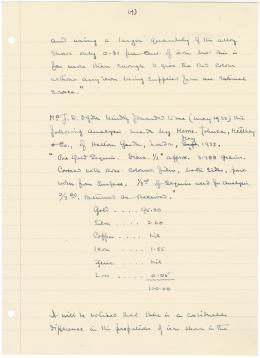 (4)
and using a larger quantity of the alloy
shows only 0.31 per cent of iron but this is
far more than enough to give the red colour
without any iron being supplied from an external
source."
Mr J. R. Ogden kindly forwarded to me (May 1933) the
following analysis made by Messrs. Johnson, Matthey
& Co., of Hatton Garden, London, 1932.
"One Gold Sequin. Diam. ½" approx. 3.388 grains.
Covered with Rose-coloured film, both sides, part
worn from surface. ⅓rd of Sequin used for Analysis
⅔ returned as received."
Gold .... 95.80
Silver .... 2.60
Copper .... Nil
Iron .... 1.55
Zinc .... Nil
Loss .... 0.05
100.00
It will be noticed that there is a considerable
difference in the proportion of iron shown in the